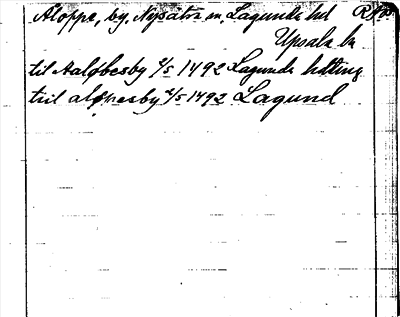 Aloppe, by, Nysätra sn, Lagunda hd
Upsala ln
til Aaløbesby 2/5 1492 Lagunda hdting
till aløpesby 2/5 1492 Lagund